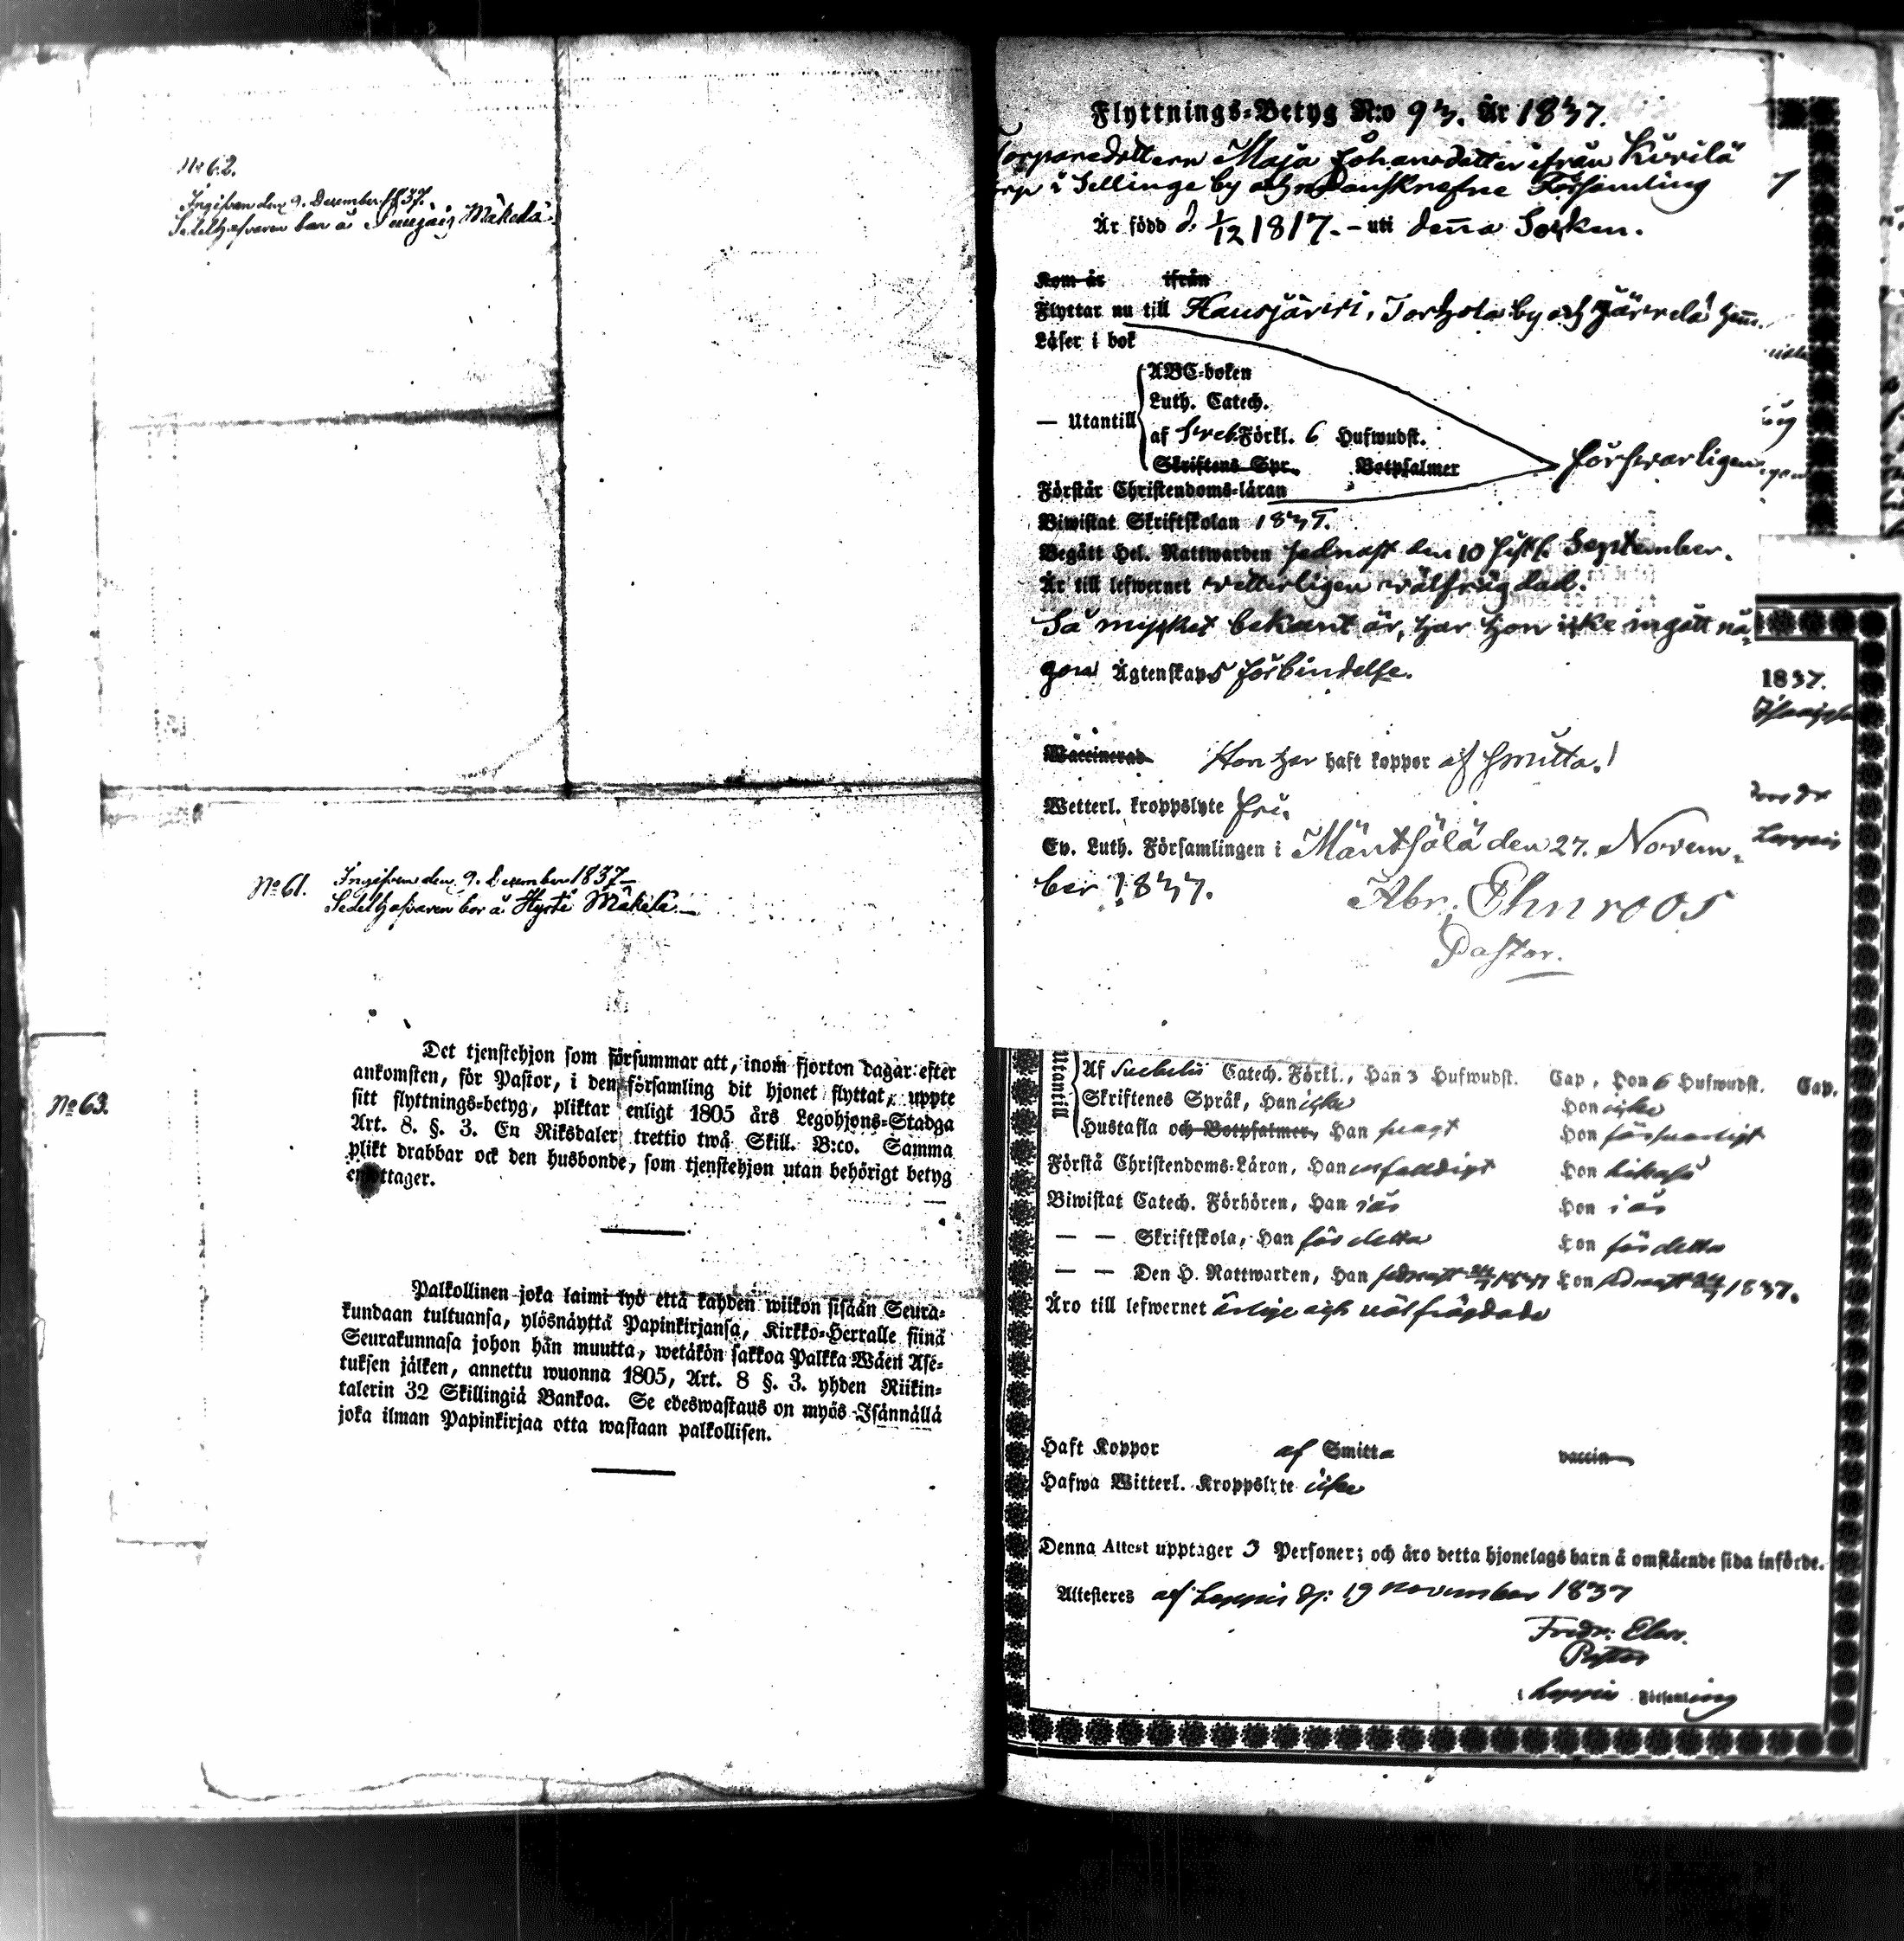 No 62.
Ingifven den 9. December 1837.
Sedelhafvaren bor å Mäkelä
No 61. Ingifven den 9. December 1837
Sedelhafvaren bor å Hyrsti Mäkilä
No 63.
Det tjenstehjon som försummar att, inom fjorton dagar efter
ankomsten, för Pastor, i den församling dit hjonet flyttat, uppte
sitt flyttnings-betyg, pliktar enligt 1805 års Legohjons-Stadga
Art. 8. §. 3. En Riksdaler trettio twå Skill. B:co. Samma
plikt drabbar ock den husbonde, som tjenstehjon utan behörigt betyg
emottager.
Palkollinen joka laimi lyö että kahden wiikon sisään Seura-
kundaan tultuansa, ylösnäyttä Papinkirjansa, Kirkko-Herralle siinä
Seurakunnasa johon hän muutta, wetäkön sakkoa Palkka Wäen Ase-
tuksen jälken, annettu wuonna 1805, Art. 8 §. 3. yhden Riikin-
talerin 32 Skillingiä Bankoa. Se edeswastaus on myös Isännällä
joka ilman Papinkirjaa otta wastaan palkollisen.
Flyttnings-Betyg N:o 93. År 1837.
Torparedottern Maja Johansdotter ifrån Kurilä
torp i Sellinge by och nedanskrefne Församling
Är född d. 1/12 1817. - uti denna Socken.
Kom år ifrån
Flyttar nu till Hausjärvi, Torhola by och Järvelä hem.
Läser i bok
— Utantill
ABC-boken
Luth. Catech.
af Sveb. Förkl. 6 Hufwudst.
Skriftens Spr. Botpsalmer
försvarligen
Förstår Christendoms-läran
Biwistat Skriftskolan 1835.
Begått Hel. Nattwarden sednast den 10 sistl. September.
Är till lefwernet vetterligen välfrägdad.
Så mycket bekant är, har hon icke ingått nå-
gon Ägtenskaps förbindelse.
Waccinerad Hon har haft koppor af smitta.
Wetterl. kroppslyte fri.
Ev. Luth. Församlingen i Mäntsälä den 27. Novem-
ber 1837.
Abr. Ehnroos
Pastor.
1837.
Loppis
Utantill
Af Svebelii Catech. Förkl., Han 3 Hufwudst. Cap, Hon 6 Hufwudst. Cap.
Skriftenes Språk, Han icke Hon icke
Hustafla och Botpsalmer, Han svagt Hon försvarligt
Förstå Christendoms-Läran, Han enfaldigt Hon likaså
Biwistat Catech. Förhören, Han i år Hon i år
— — Skriftskola, Han för detta Hon för detta
— — Den H. Nattwarden, Han sednast 24/9 1837 Hon sednast 24/9 1837.
Äro till lefwernet ärlige och välfrägdade
Haft Koppor af Smitta vaccin
Hafwa Witterl. Kroppslyte icke
Denna Attest upptager 3 Personer; och äro detta hjonelags barn å omstående sida införde.
Attesteras af Loppis d: 19 november 1837
Fredr:
Pastor
i Loppis Församling